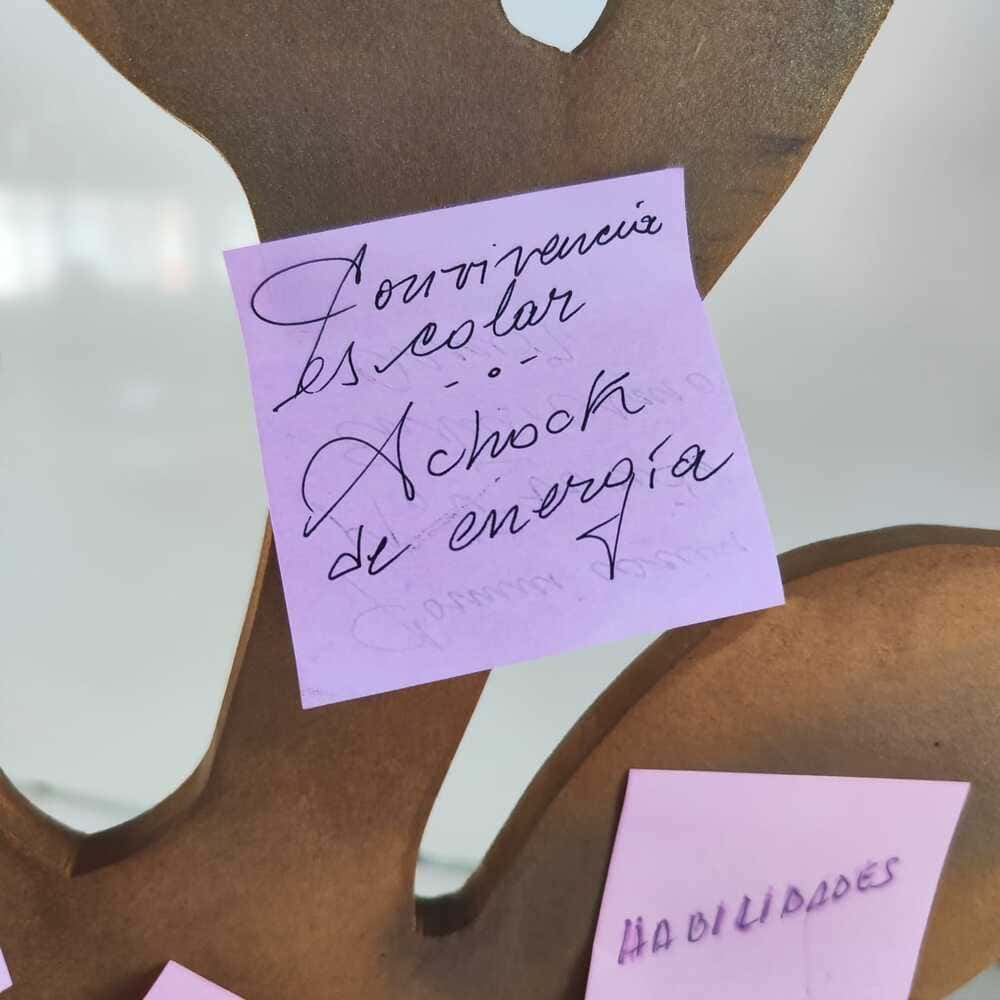 Convivencia
escolar
- o -
Achock
de energía
HABILIDADES